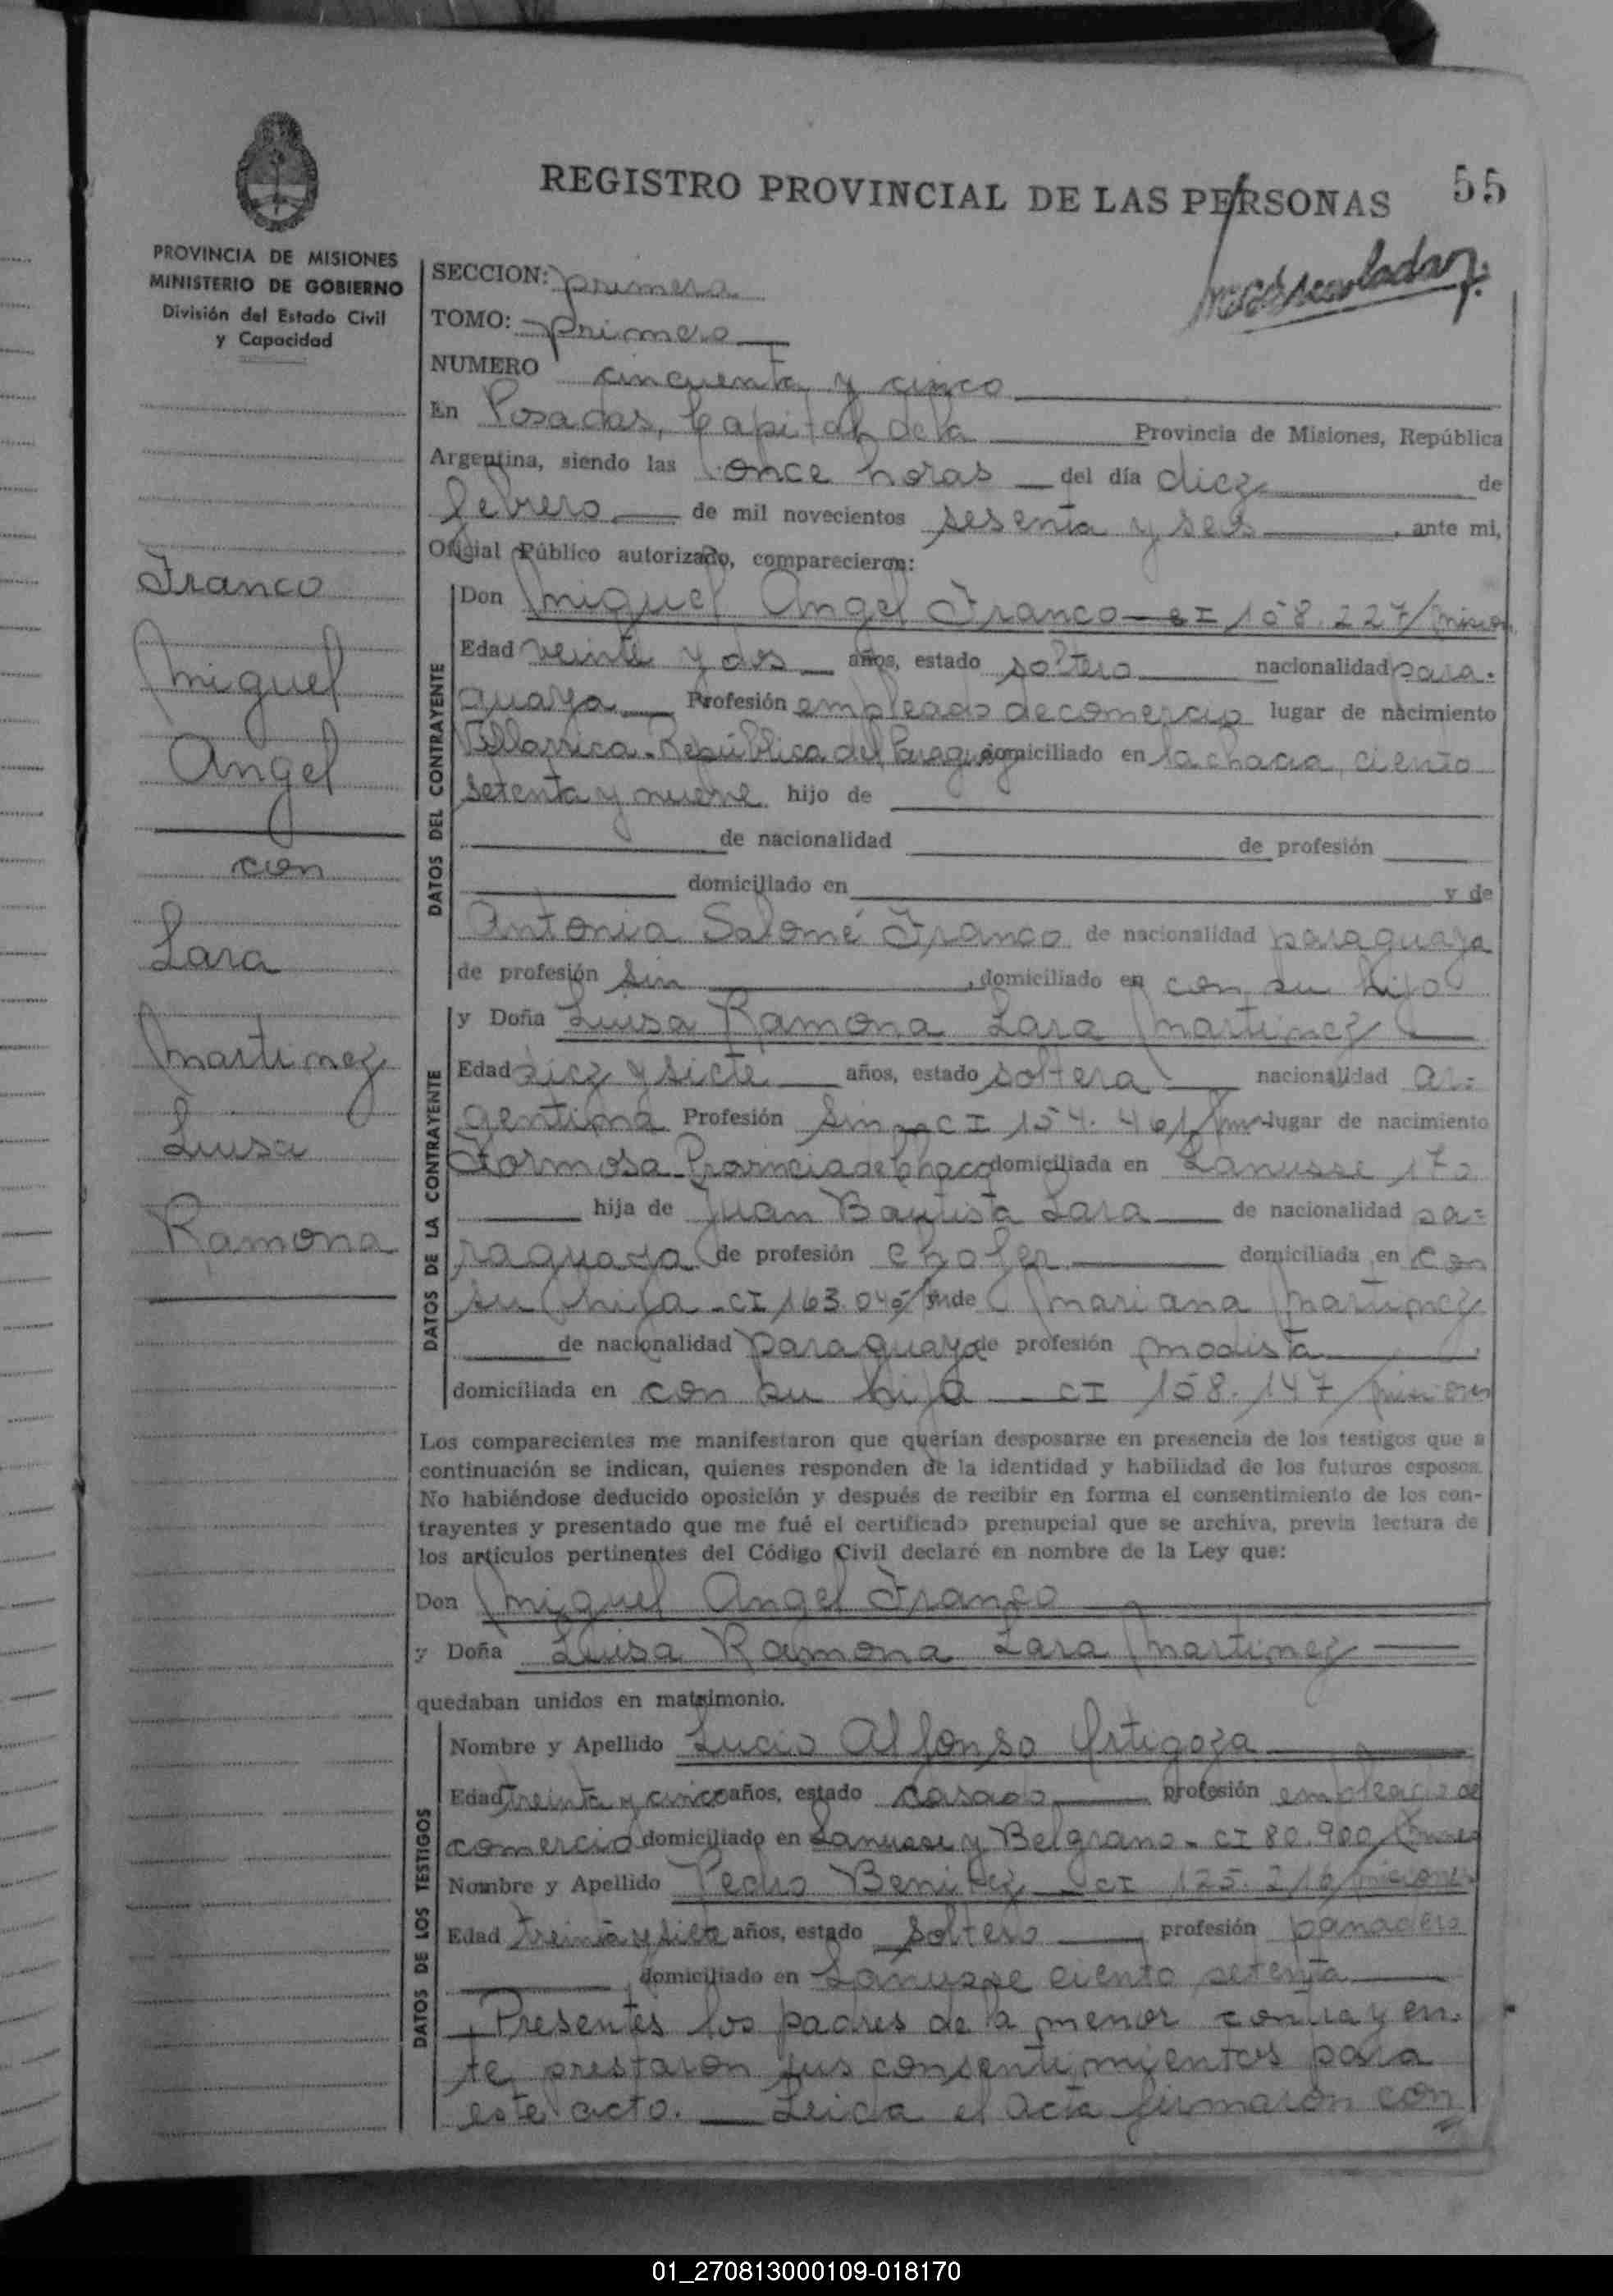 REGISTRO PROVINCIAL DE LAS PERSONAS 55
PROVINCIA DE MISIONES
MINISTERIO DE GOBIERNO
División del Estado Civil
y Capacidad
Franco
Miguel
Angel
con
Lara
Martinez
Luisa
Ramona
SECCION: primera
TOMO: primero
NUMERO cincuenta y cinco
En Posadas, Capital de la Provincia de Misiones, República
Argentina, siendo las once horas del día diez de
febrero de mil novecientos sesenta y seis, ante mi,
Oficial Público autorizado, comparecieron:
DATOS DEL CONTRAYENTE
Don Miguel Angel Franco - CI 158.227/Mision
Edad veinte y dos años, estado soltero nacionalidad para-
guaya Profesión empleado de comercio lugar de nacimiento
Villarrica - República del Paraguay domiciliado en la chacra ciento
setenta y nueve hijo de
de nacionalidad de profesión
domiciliado en y de
Antonia Salomé Franco de nacionalidad paraguaya
de profesión sin, domiciliado en con su hijo
DATOS DE LA CONTRAYENTE
y Doña Luisa Ramona Lara Martinez
Edad diez y siete años, estado soltera nacionalidad ar-
gentina Profesión Sin CI 154.461/ lugar de nacimiento
Formosa - Provincia de Chaco domiciliada en Lanusse 170
hija de Juan Bautista Lara de nacionalidad pa-
raguaya de profesión chofer domiciliada en con
su hija - CI 163.045/ de Mariana Martinez
de nacionalidad paraguaya de profesión modista
domiciliada en con su hija - CI 158.147/Misiones
Los comparecientes me manifestaron que querían desposarse en presencia de los testigos que a
continuación se indican, quienes responden de la identidad y habilidad de los futuros esposos.
No habiéndose deducido oposición y después de recibir en forma el consentimiento de los con-
trayentes y presentado que me fué el certificado prenupcial que se archiva, previa lectura de
los artículos pertinentes del Código Civil declaré en nombre de la Ley que:
Don Miguel Angel Franco
y Doña Luisa Ramona Lara Martinez
quedaban unidos en matrimonio.
DATOS DE LOS TESTIGOS
Nombre y Apellido Lucio Alfonso Ortigoza
Edad treinta y cinco años, estado casado profesión empleado de
comercio domiciliado en Lanusse y Belgrano - CI 80.900/
Nombre y Apellido Pedro Benitez - CI 125.216/Misiones
Edad treinta y siete años, estado soltero profesión panadero
domiciliado en Lanusse ciento setenta
Presentes los padres de la menor contrayen-
te, prestaron sus consentimientos para
este acto. - Leida el acta firmaron con
01_270813000109-018170